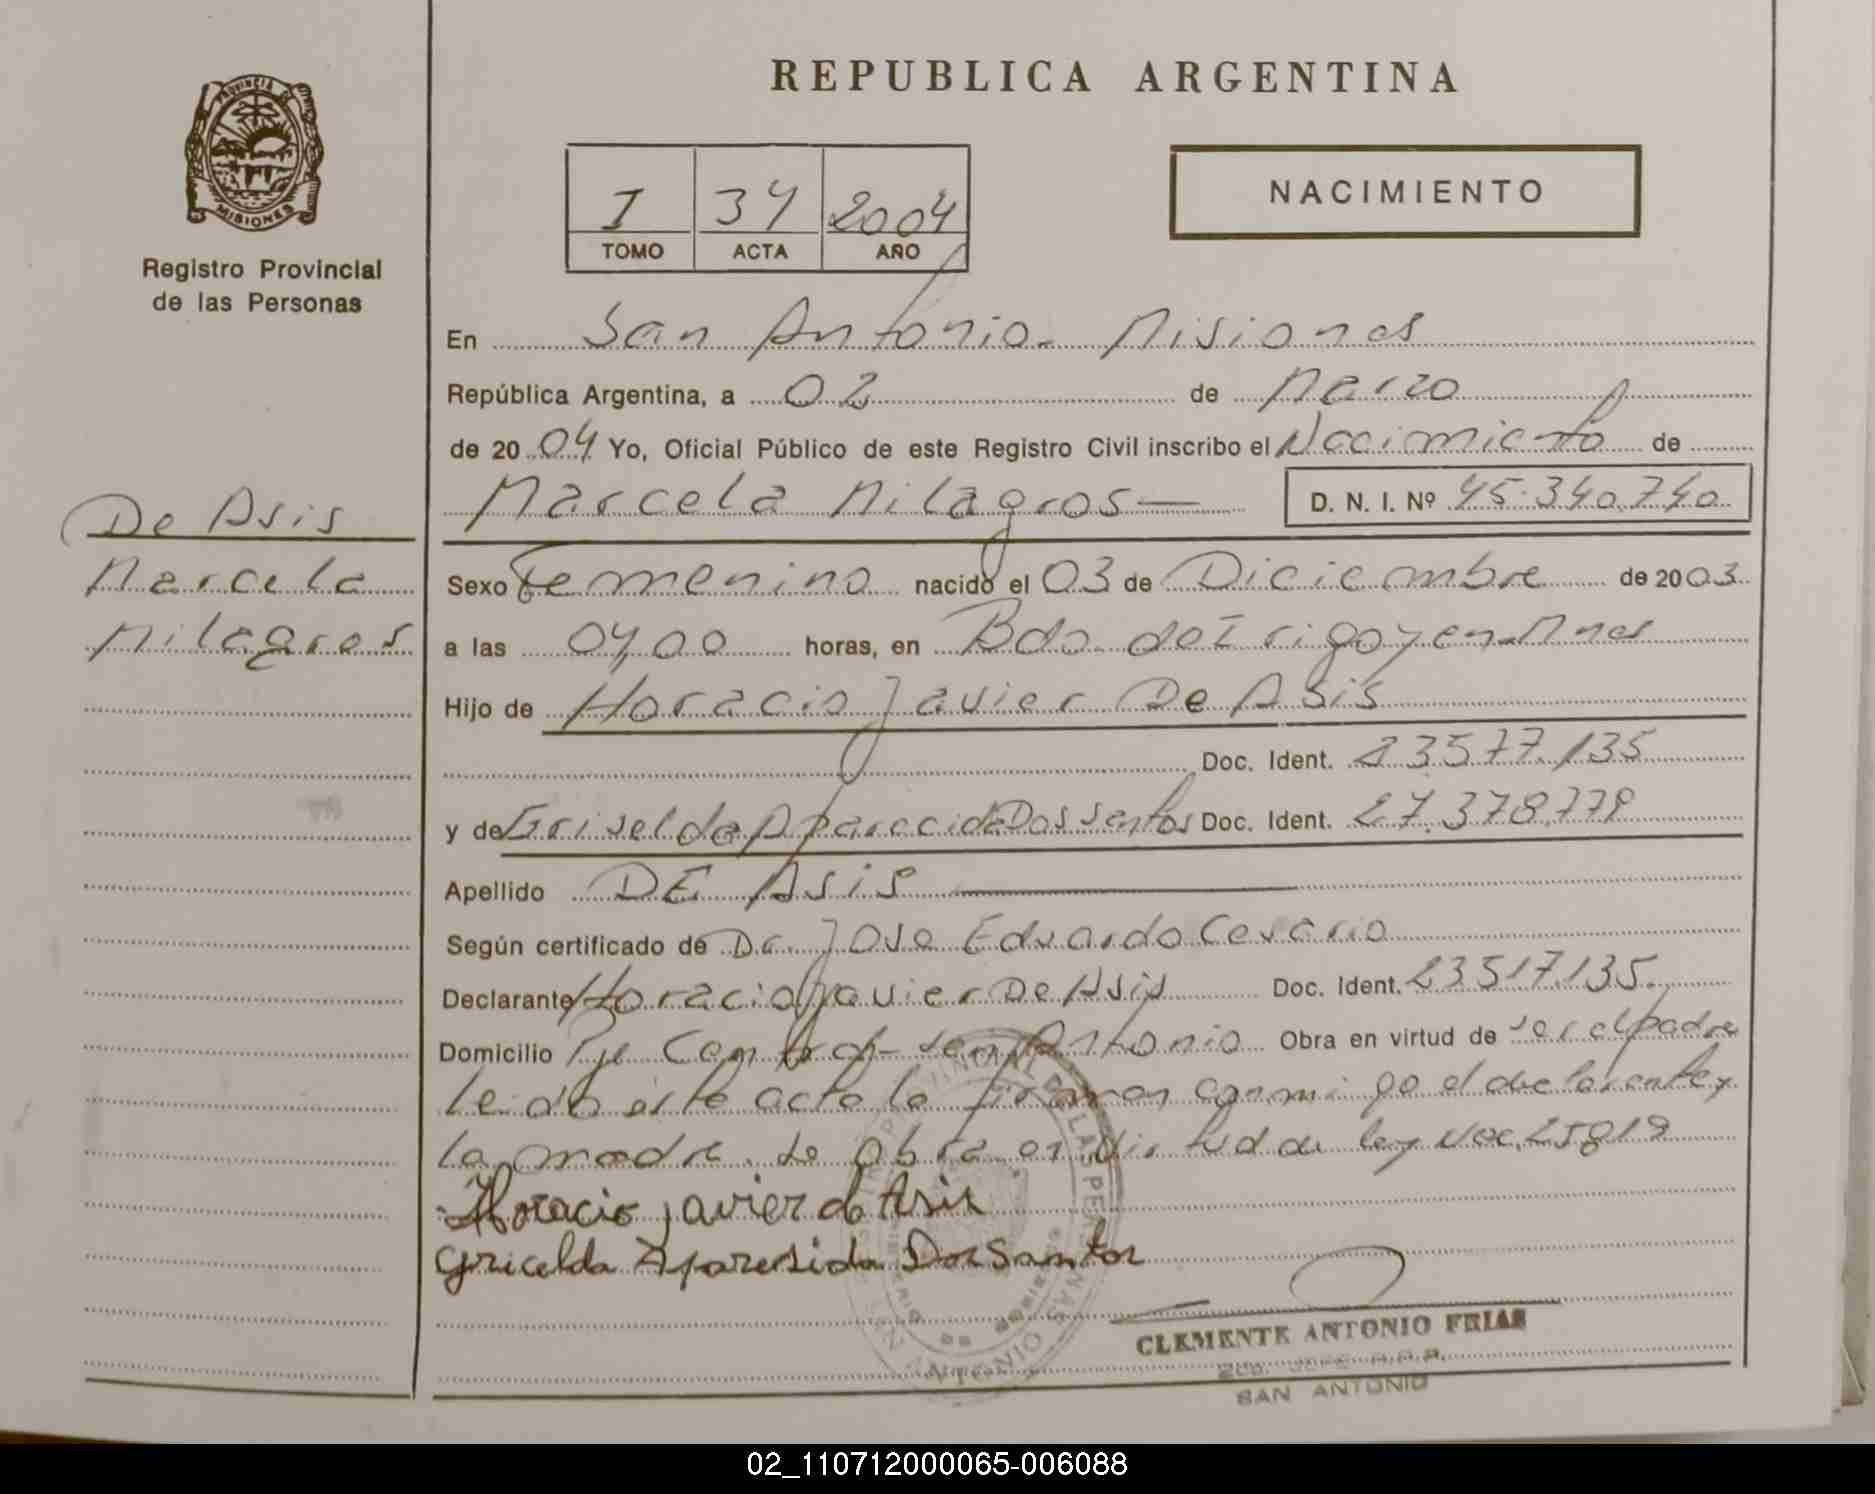 REPUBLICA ARGENTINA
PROVINCIA DE
MISIONES
Registro Provincial
de las Personas
I 34 2004
TOMO ACTA AÑO
NACIMIENTO
En San Antonio - Misiones
República Argentina, a 02 de Marzo
de 20 04 Yo, Oficial Público de este Registro Civil inscribo el Nacimiento de
Marcela Milagros — D. N. I. Nº 45.340.740
De Asis
Marcela
Milagros
Sexo Femenino nacido el 03 de Diciembre de 2003
a las 04,00 horas, en Bdo. de Irigoyen - Mnes
Hijo de Horacio Javier De Asis
Doc. Ident. 23577.135
y de Griselda Aparecida Dos Santos Doc. Ident. 27.378.779
Apellido DE Asis
Según certificado de Dr. Jose Eduardo Cesario
Declarante Horacio Javier De Asis Doc. Ident. 23517.135.
Domicilio Pje San Antonio Obra en virtud de ser el padre
leido este acta la firman conmigo el declarante y
la madre. Se obra en virtud de ley Nac. 25819
Horacio javier de Asis
Gricelda Aparesida Dos Santos
CLEMENTE ANTONIO FRIAS
SAN ANTONIO
02_110712000065-006088